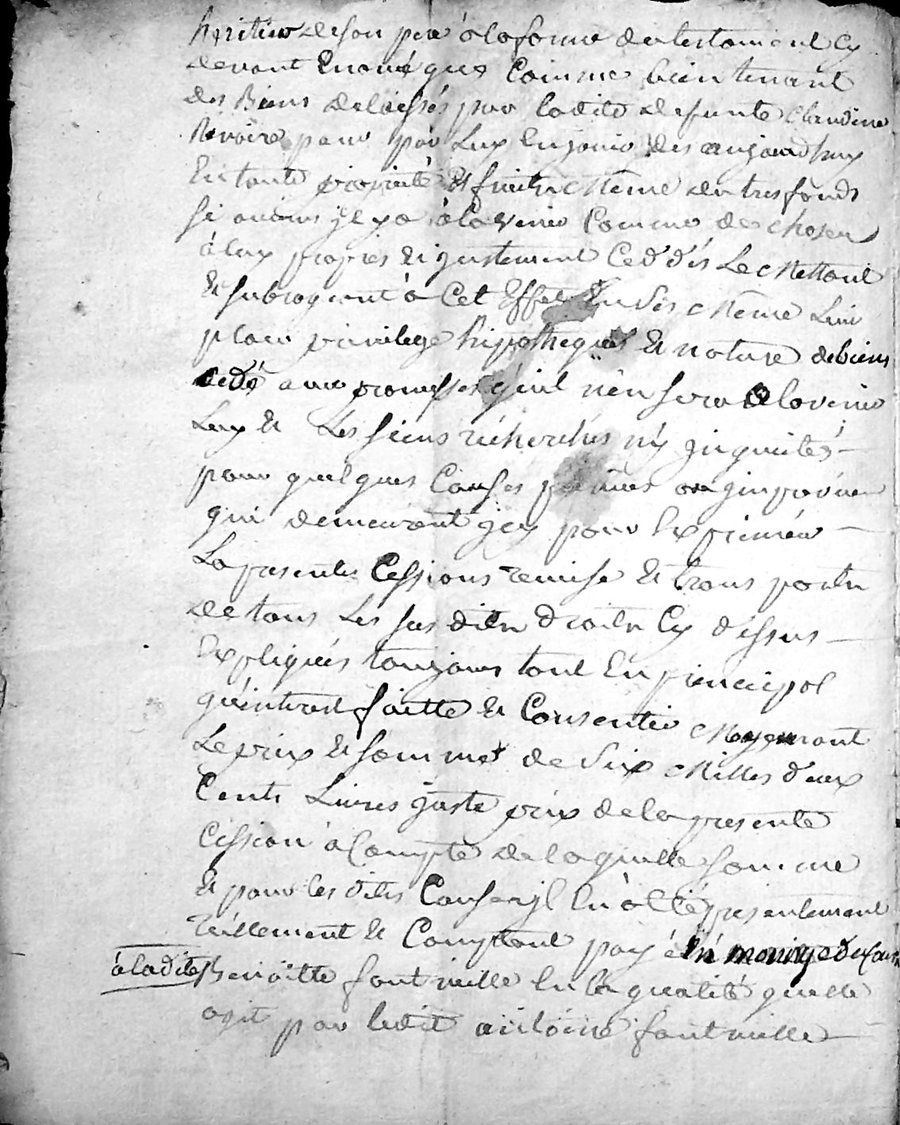 heritier de son pere à la forme du testament cy
devant Enoncé que Comme bien tenant
des Biens delaissés par ladite defunte Claudine
Revoire pour par Luy En jouir des aujourdhuy
En toute proprieté Et fruits même du tres fonds
si aucuns jl y a à lavenir Comme de choses
à luy propres Et justement Ced'dés Le Mettant
Et subrogeant à Cet Effet En Ses même Lieu
place privilege hipotheques Et nature de biens
cedé avec promesses qu'il n'en sera à lavenir
Luy Et Les siens récherchés n'y jnquietés
pour quelques Causes jmprévue
qui demeurent jcy pour Exprimée
La presente Cessions remise Et transporte
de tous Les sus dits droits Cy dessus
Expliqués toujours tout En principal
qu'interet faitte Et Consentie Moyennant
Le prix Et somme de Six Milles deux
Cents Livres juste prix de la presente
Cession à Compte de laquelle somme
Et pour les dites Causes jl En à Eté presentement
réellement Et Comptant payé En monnoye de Cours
à ladite Benoitte fontvieille En la qualité quelle
agit par ledit antoine fontvieille